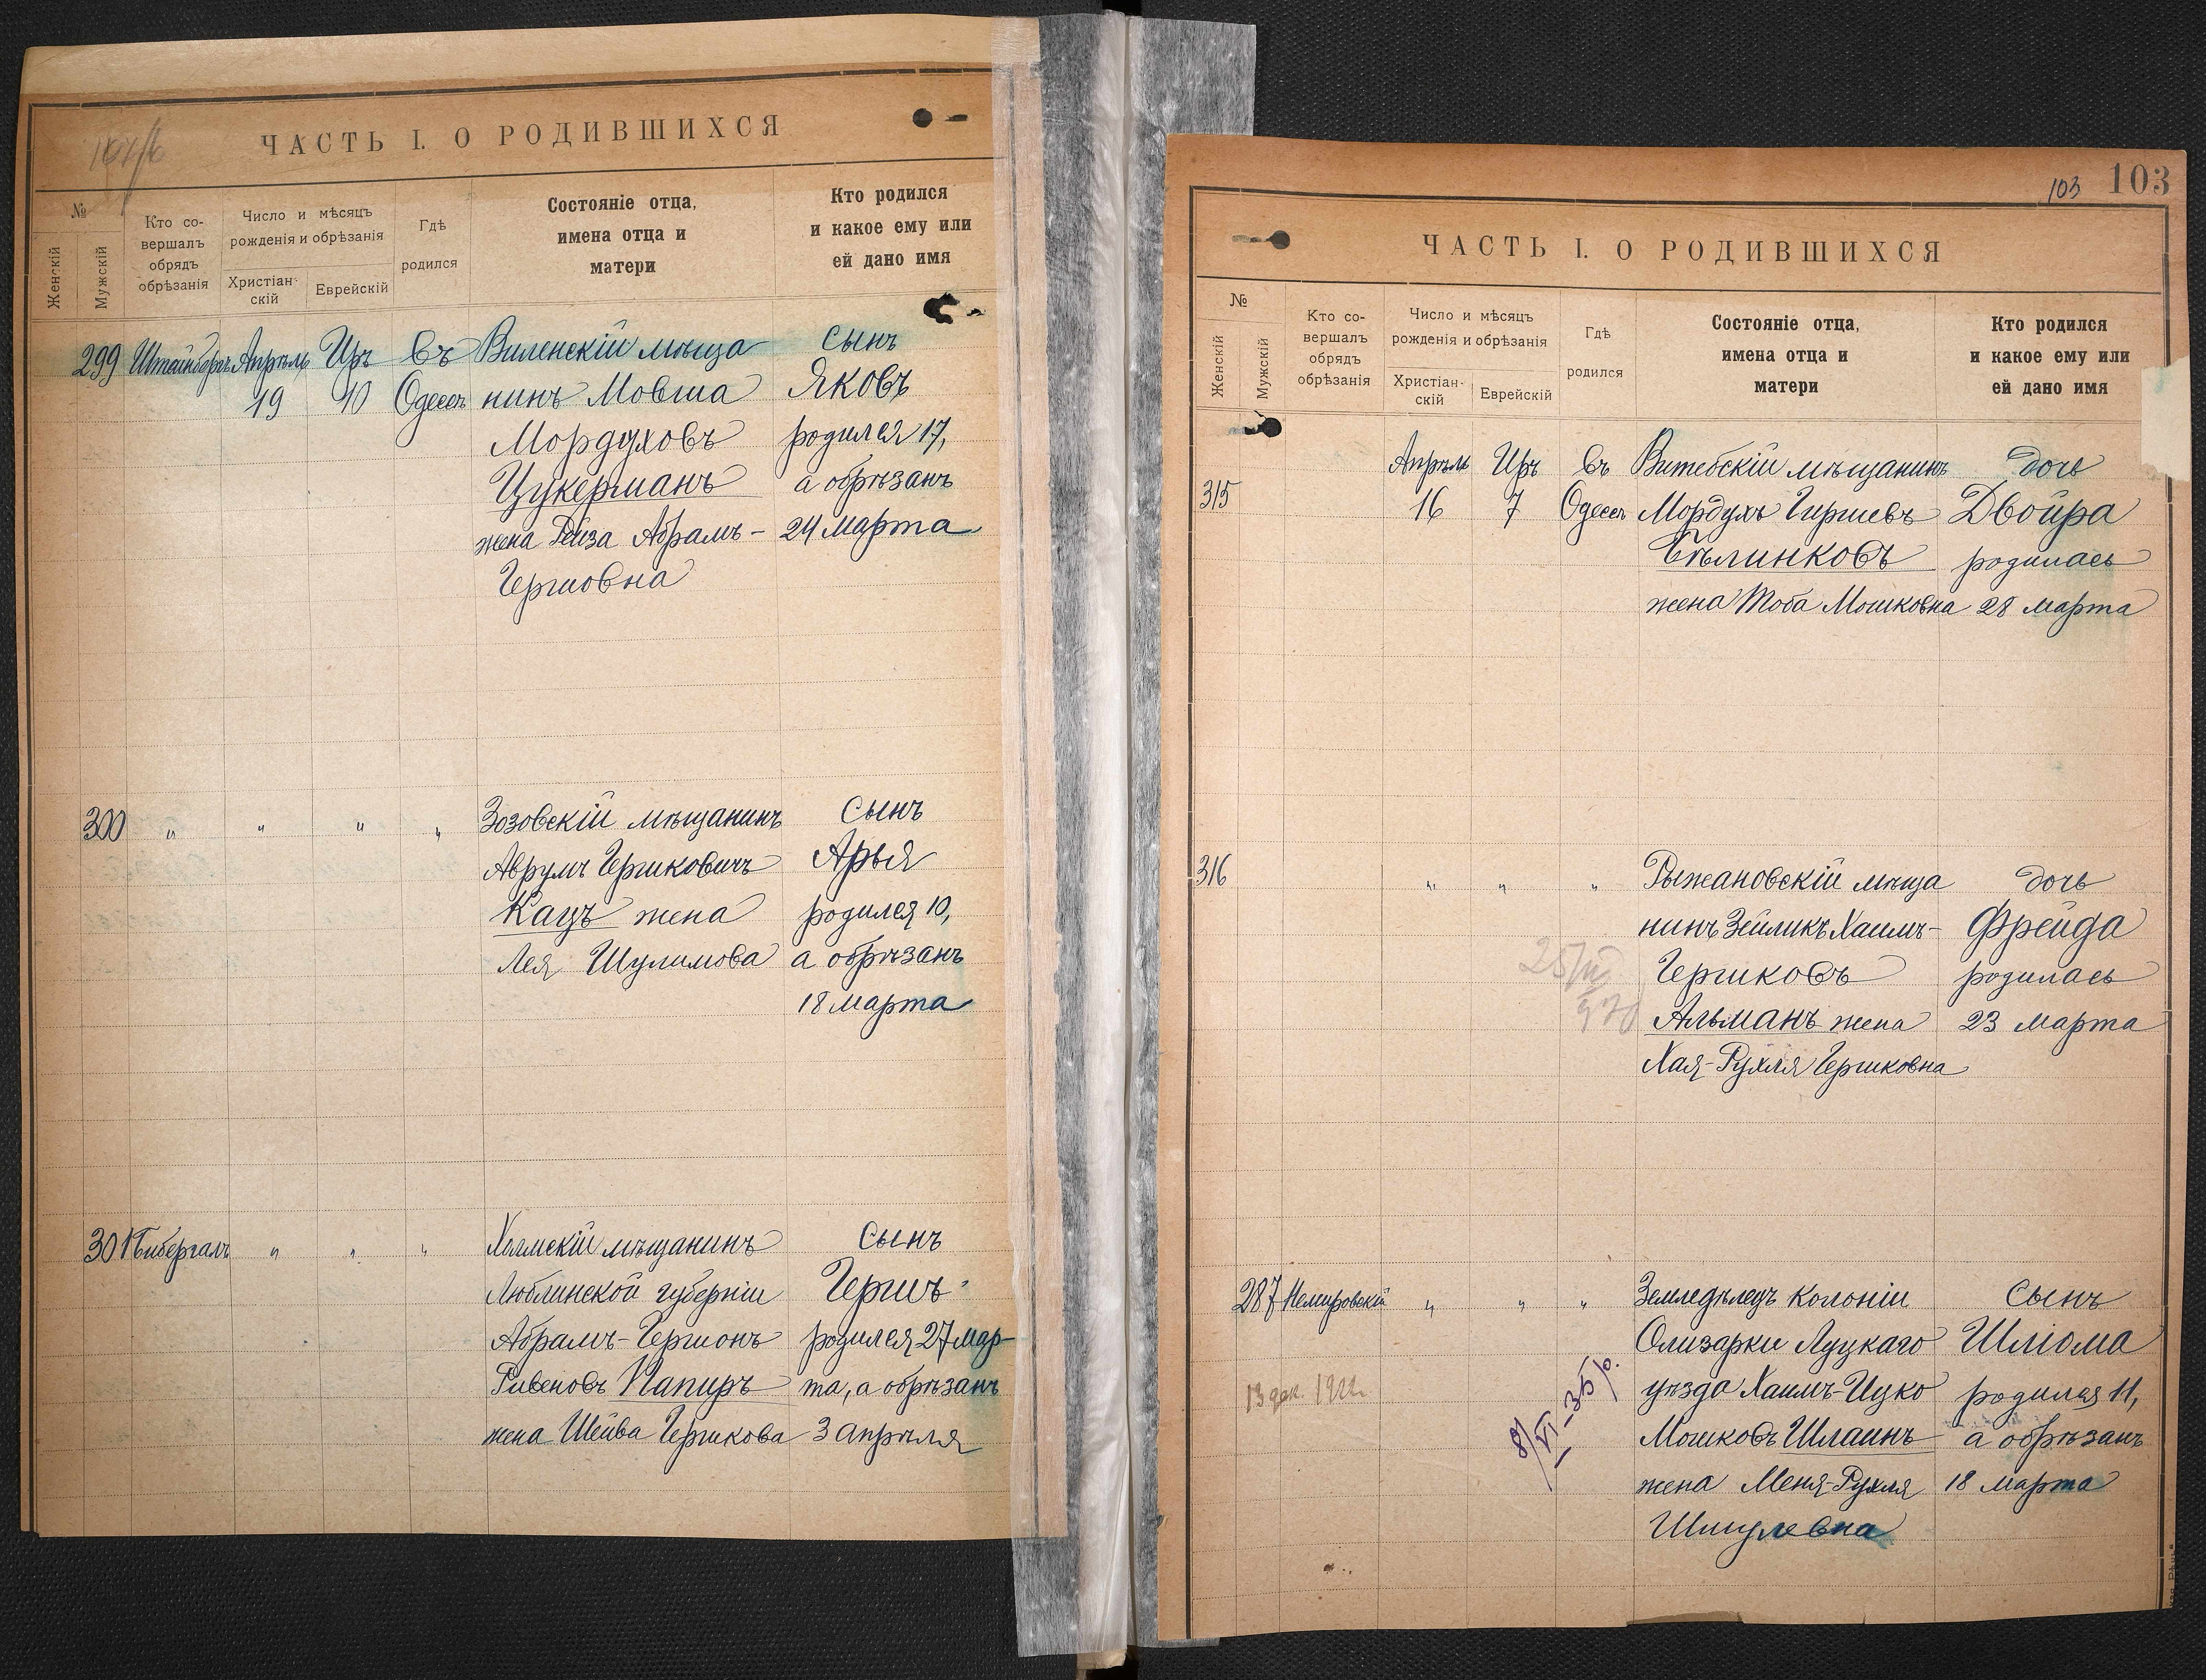 ЧАСТЬ I. О РОДИВШИХСЯ
№
Женскій
Мужскій
Кто со-
вершалъ
обрядъ
обрѣзанія
Число и мѣсяцъ
рожденія и обрѣзанія
Христіан-
скій
Еврейскій
Гдѣ
родился
Состояніе отца,
имена отца и
матери
Кто родился
и какое ему или
ей дано имя
299 Штейнбергъ Апрѣль Іръ въ Виленскій мѣща сынъ
19 10 Одессѣ нинъ Мовша Яковъ
Мордуховъ родился 17,
Цукерманъ а обрѣзанъ
жена Рейза Абрамъ- 24 марта
Гершовна
300 " " " " Зозовскій мѣщанинъ сынъ
Аврумъ Гершковичъ Арья
Кацъ жена родился 10,
Лея Шулимова а обрѣзанъ
18 марта
301 Бибергалъ " " " Холмскій мѣщанинъ сынъ
Люблинской губерніи Гершъ
Абрамъ-Гершонъ родился 27 мар-
Ривеновъ Папиръ та, а обрѣзанъ
жена Шейва Гершкова 3 апрѣля
103 103
ЧАСТЬ I. О РОДИВШИХСЯ
№
Женскій
Мужскій
Кто со-
вершалъ
обрядъ
обрѣзанія
Число и мѣсяцъ
рожденія и обрѣзанія
Христіан-
скій
Еврейскій
Гдѣ
родился
Состояніе отца,
имена отца и
матери
Кто родился
и какое ему или
ей дано имя
Апрѣль Іръ въ Витебскій мѣщанинъ дочь
315 16 7 Одессѣ Мордухъ Гиршевъ Двойра
Бѣлинковъ родилась
жена Тоба Мошковна 28 марта
316 " " " Рыжановскій мѣща дочь
нинъ Зейликъ Хаимъ- Фрейда
Гершковъ родилась
Альманъ жена 23 марта
Хая-Рухля Гершковна
287 Немировскій " " " Земледѣлецъ колоніи сынъ
Олизарки Луцкаго Шліома
уѣзда Хаимъ-Ицко родился 11,
13 дек. 1922 г. 8/VI-35 г. Мошковъ Шлаинъ а обрѣзанъ
жена Меня-Рухля 18 марта
Шмулевна